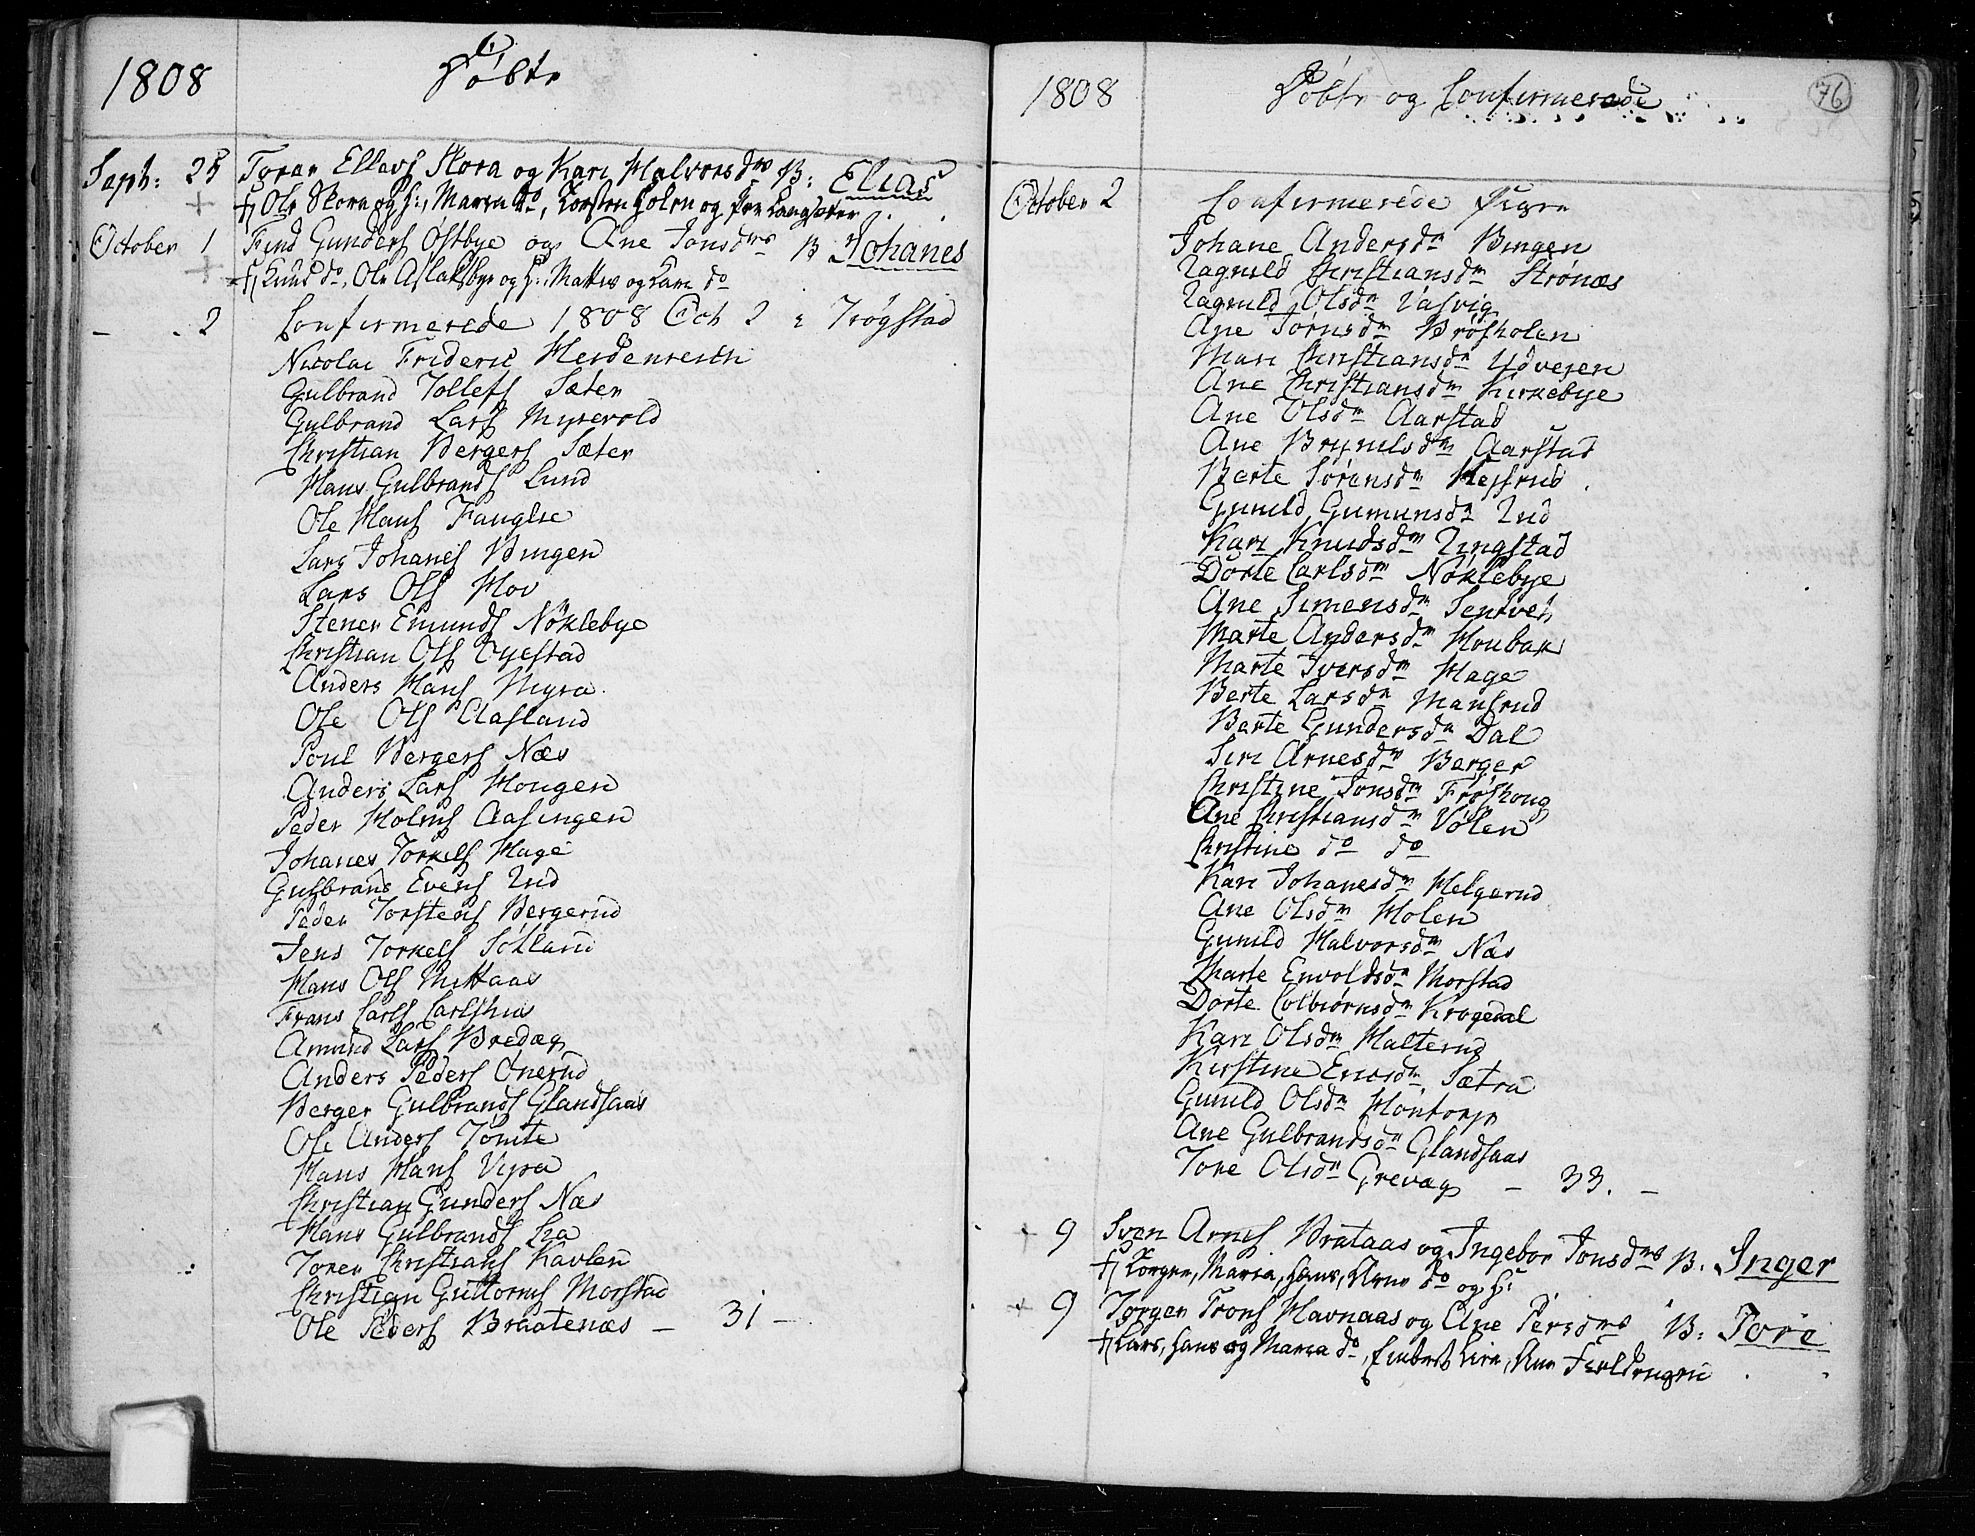 1808 Döbte
Septr: 25 Tyrer Ellevs Skora og Kari Halvorsdtr B: Elias
f/ Ole Skora og H:, Maria do, Torsten Holen og Per Langsæter
October 1 Find Gunders Østbye og Ane Jonsdtr B Johanes
f/ Knud do, Ole Aslaksbye og H:, Mattis og Kari do
- - 2 Confirmerede 1808 Oct 2 i Trögstad
Nicolai Frideric Heidenreich
Gulbrand Tollefs Sæter
Gulbrand Lars Myrevold
Christian Bergers Sæter
Hans Gulbrands Lund
Ole Hans Fanglie
Lars Johanes Bingen
Lars Ols Hov
Stener Emunds Nöklebye
Christian Ols Oyestad
Anders Hans Myra
Ole Ols Aasland
Poul Bergers Næs
Anders Lars Hougen
Peder Holms Aasingen
Johanes Torkels Hage
Gulbrand Evens Rud
Peder Torstens Bergerud
Jens Torkels Solland
Hans Ols Mittaas
Frans Carls Carlshus
Amund Lars Bredæg
Anders Peders Onerud
Berger Gulbrands Glandsaas
Ole Anders Tomte
Hans Hans Vyra
Christian Gunders Næs
Hans Gulbrands Lia
Torer Christians Kavlen
Christian Guttorms Morstad
Ole Peders Braatenæs - 31 -
1808 Döbte og Confirmerede 76
October 2 Confirmerede Piger
Johane Andersdr Bingen
Ragnild Christiansdr Strönæs
Ragnild Olsdr Raasvig
Ane Jörnsdr Brösholen
Mari Christiansdr Udvejen
Ane Christiansdr Kirkebye
Ane Olsdr Aarstad
Ane Brynilsdr Aarstad
Berte Sörensdr Hejsrud
Gunild Gumunsdr Rud
Kari Knudsdr Ringstad
Dorte Carlsdr Nöklebye
Ane Simensdr Sentvet
Marte Andersdr Houbak
Marte Iversdr Hage
Berte Larsdr Mansrud
Berte Gundersdr Dal
Siri Arnesdr Berger
Christine Jonsdr Fröshoug
Ane Christiansdr Volen
Christine do do
Kari Johanesdr Helgerud
Ane Olsdr Holen
Gunild Halvorsdr Næs
Marte Envoldsdr Morstad
Dorte Colbiörnsdr Kragedal
Kari Olsdr Halterud
Kirstine Ericsdr Sætra
Gunild Olsdr Hontorp
Ane Gulbrandsdr Glandsaas
Tore Olsdr Grevæg - 33. -
9 Sven Arnes Brataas og Ingebor Jonsdtr B. Inger
f/ Torger, Maria, Hans, Arne do og H:
9 Jörgen Trons Havnaas og Ane Persdtr B: Tore
f/ Lars, Hans og Maria do, Embret Lien, Ane Fieldengen